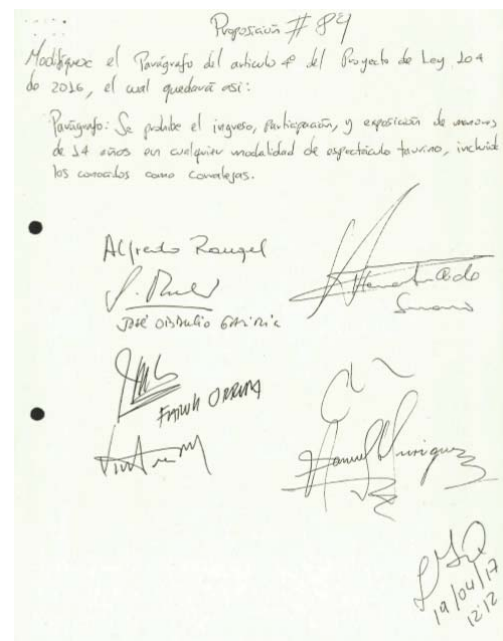 Proposición # 84
Modifíquese el Parágrafo del artículo 4º del Proyecto de Ley 104
de 2016, el cual quedará así:
Parágrafo: Se prohibe el ingreso, participación, y exposición de menores
de 14 años en cualquier modalidad de espectáculo taurino, incluid
los conocidos como corralejas.
Alfredo Rangel
José Obdulio Gaviria
19/04/17
12:12